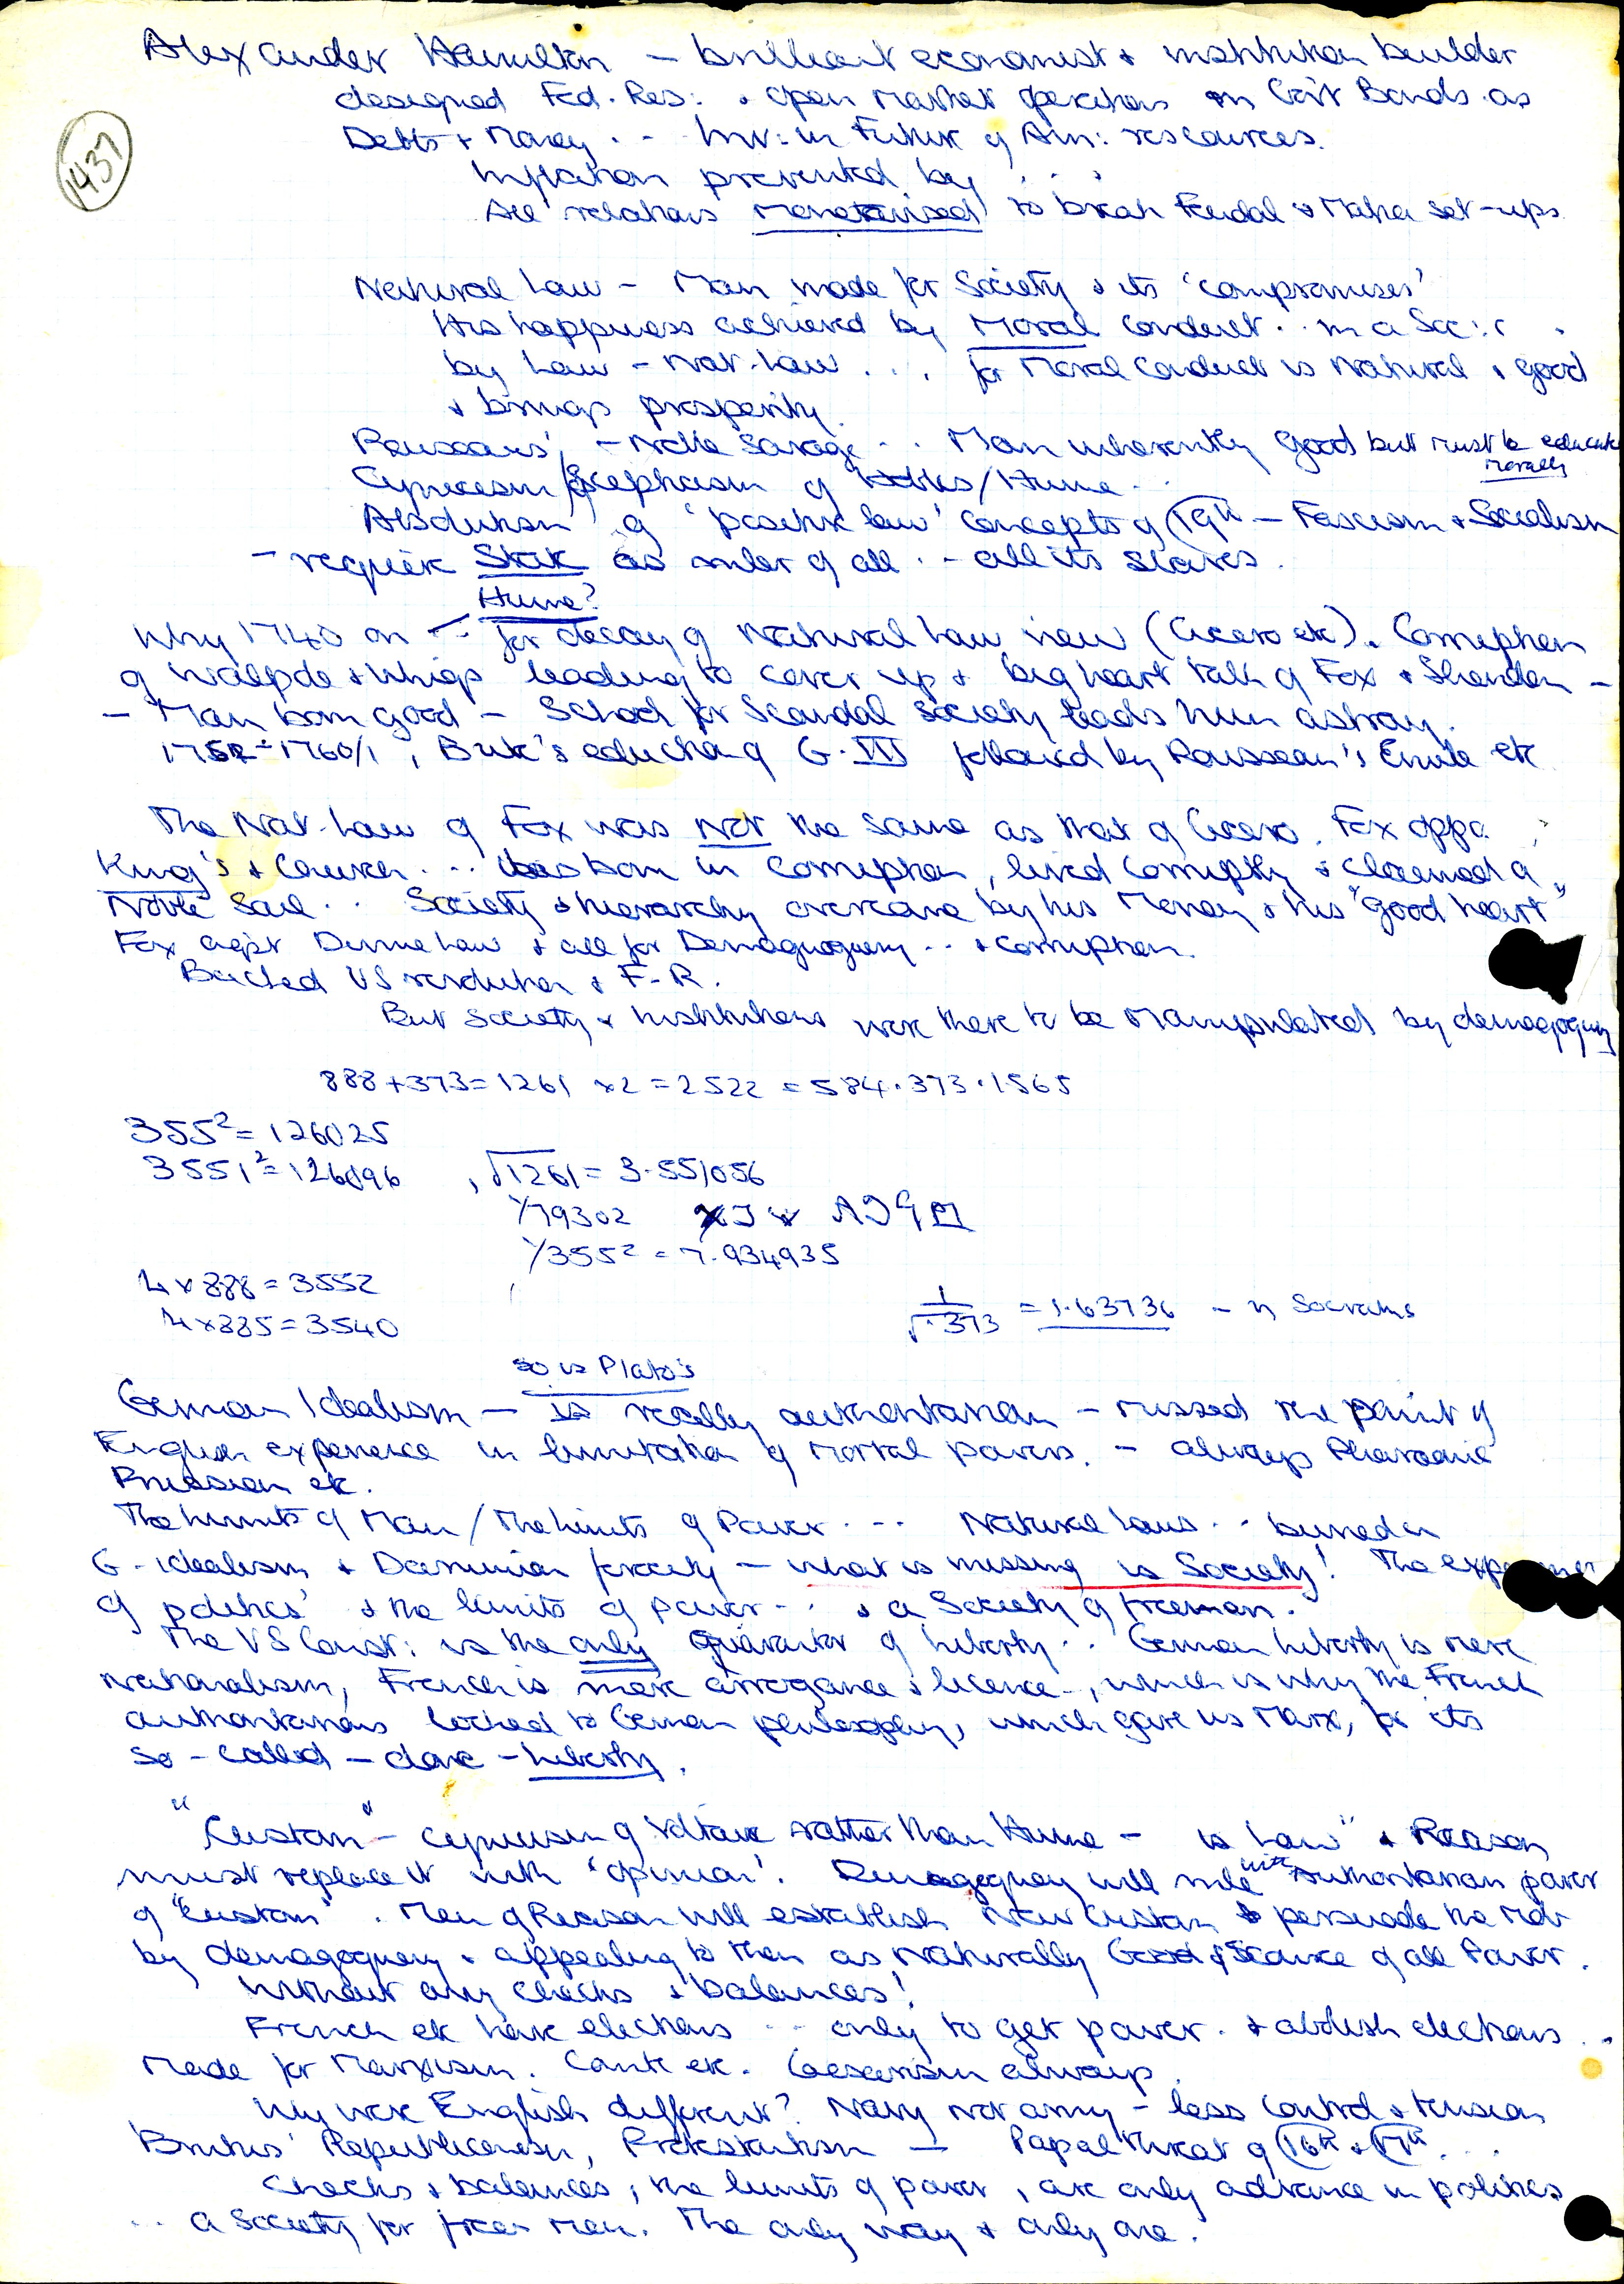 Alexander Hamilton — brilliant economist & institution builder
designed Fed. Res: & open market operations on Gov't Bonds as
Debts & Money . . - Inv: in Future of Am: resources.
1437
Inflation prevented by . . .
All relations monetarised to break Feudal & Mafia set-ups
Natural Law — Man made for Society & its 'compromises'
His happiness achieved by Moral conduct . . in a Soc:
by Law — Nat. Law . . . for Moral Conduct is natural & good
& brings prosperity.
Rousseau's — Noble Savage . . Man inherently good but must be educated
morally
Cynicism / Scepticism of Hobbes / Hume . .
Absolutism of 'positive law' concepts of 19th — Fascism & Socialism
— require State as ruler of all . . — all its slaves.
Hume?
Why 1740 on . . for decay of Natural Law view (Cicero etc). Corruption
of Walpole & Whigs leading to cover up & big heart talk of Fox & Sheridan —
— Man born good — School for Scandal society leads him astray.
1760/1, Bute's education of G. III followed by Rousseau's Emile etc
The Nat. Law of Fox was not the same as that of Cicero. Fox oppo
King's & Church . . . was born in corruption, lived corruptly & claimed a
Noble Soul . . Society & hierarchy overcome by his Money & his "good heart"
Fox ag'st Divine Law & all for Demagoguery . . & corruption.
Backed US revolution & F.R.
But Society & Institutions were there to be manipulated by demagoguery
888+373=1261 ×2=2522 = 584.373.1565
355²=126025
3551²=126096 , √1261 = 3.551056
1/79302
1/355² = 7.934935
4×888=3552
4×885=3540
1/√.373 = 1.63736 — η Socrates
so is Plato's
German Idealism — is really authoritarian — missed the point of
English experience in limitation of mortal powers. — always Pharaonic
Prussian etc.
The Limits of Man / The Limits of Power . . . Natural Laws . . buried in
G-idealism & Darwinian ferocity — what is missing is Society! The experience
of politics' & the limits of power . . & a Society of freemen.
The US Const: is the only guarantor of liberty . . German liberty is mere
nationalism, French is mere arrogance & licence, which is why the French
authoritarians looked to German philosophy, which gave us Marx, for its
so-called — slave — liberty.
"Custom" — cynicism of Voltaire rather than Hume — is Law" & Reason
must replace it with 'opinion'. Demagoguery will rule with Authoritarian power
of "Custom". Men of Reason will establish New Custom & persuade the Mob
by demagoguery & appealing to them as Naturally Good & Source of all Power.
Without any checks & balances!
French etc have elections . . only to get power & abolish elections . .
Made for Marxism. Comte etc. Caesarism always.
Why were English different? Navy not army — less control & tension
Brutus' Republicanism, Protestantism — Papal threat of 16th & 17th . . .
Checks & balances, the limits of power, are only advance in politics
. . . a Society for free men. The only way & only one.